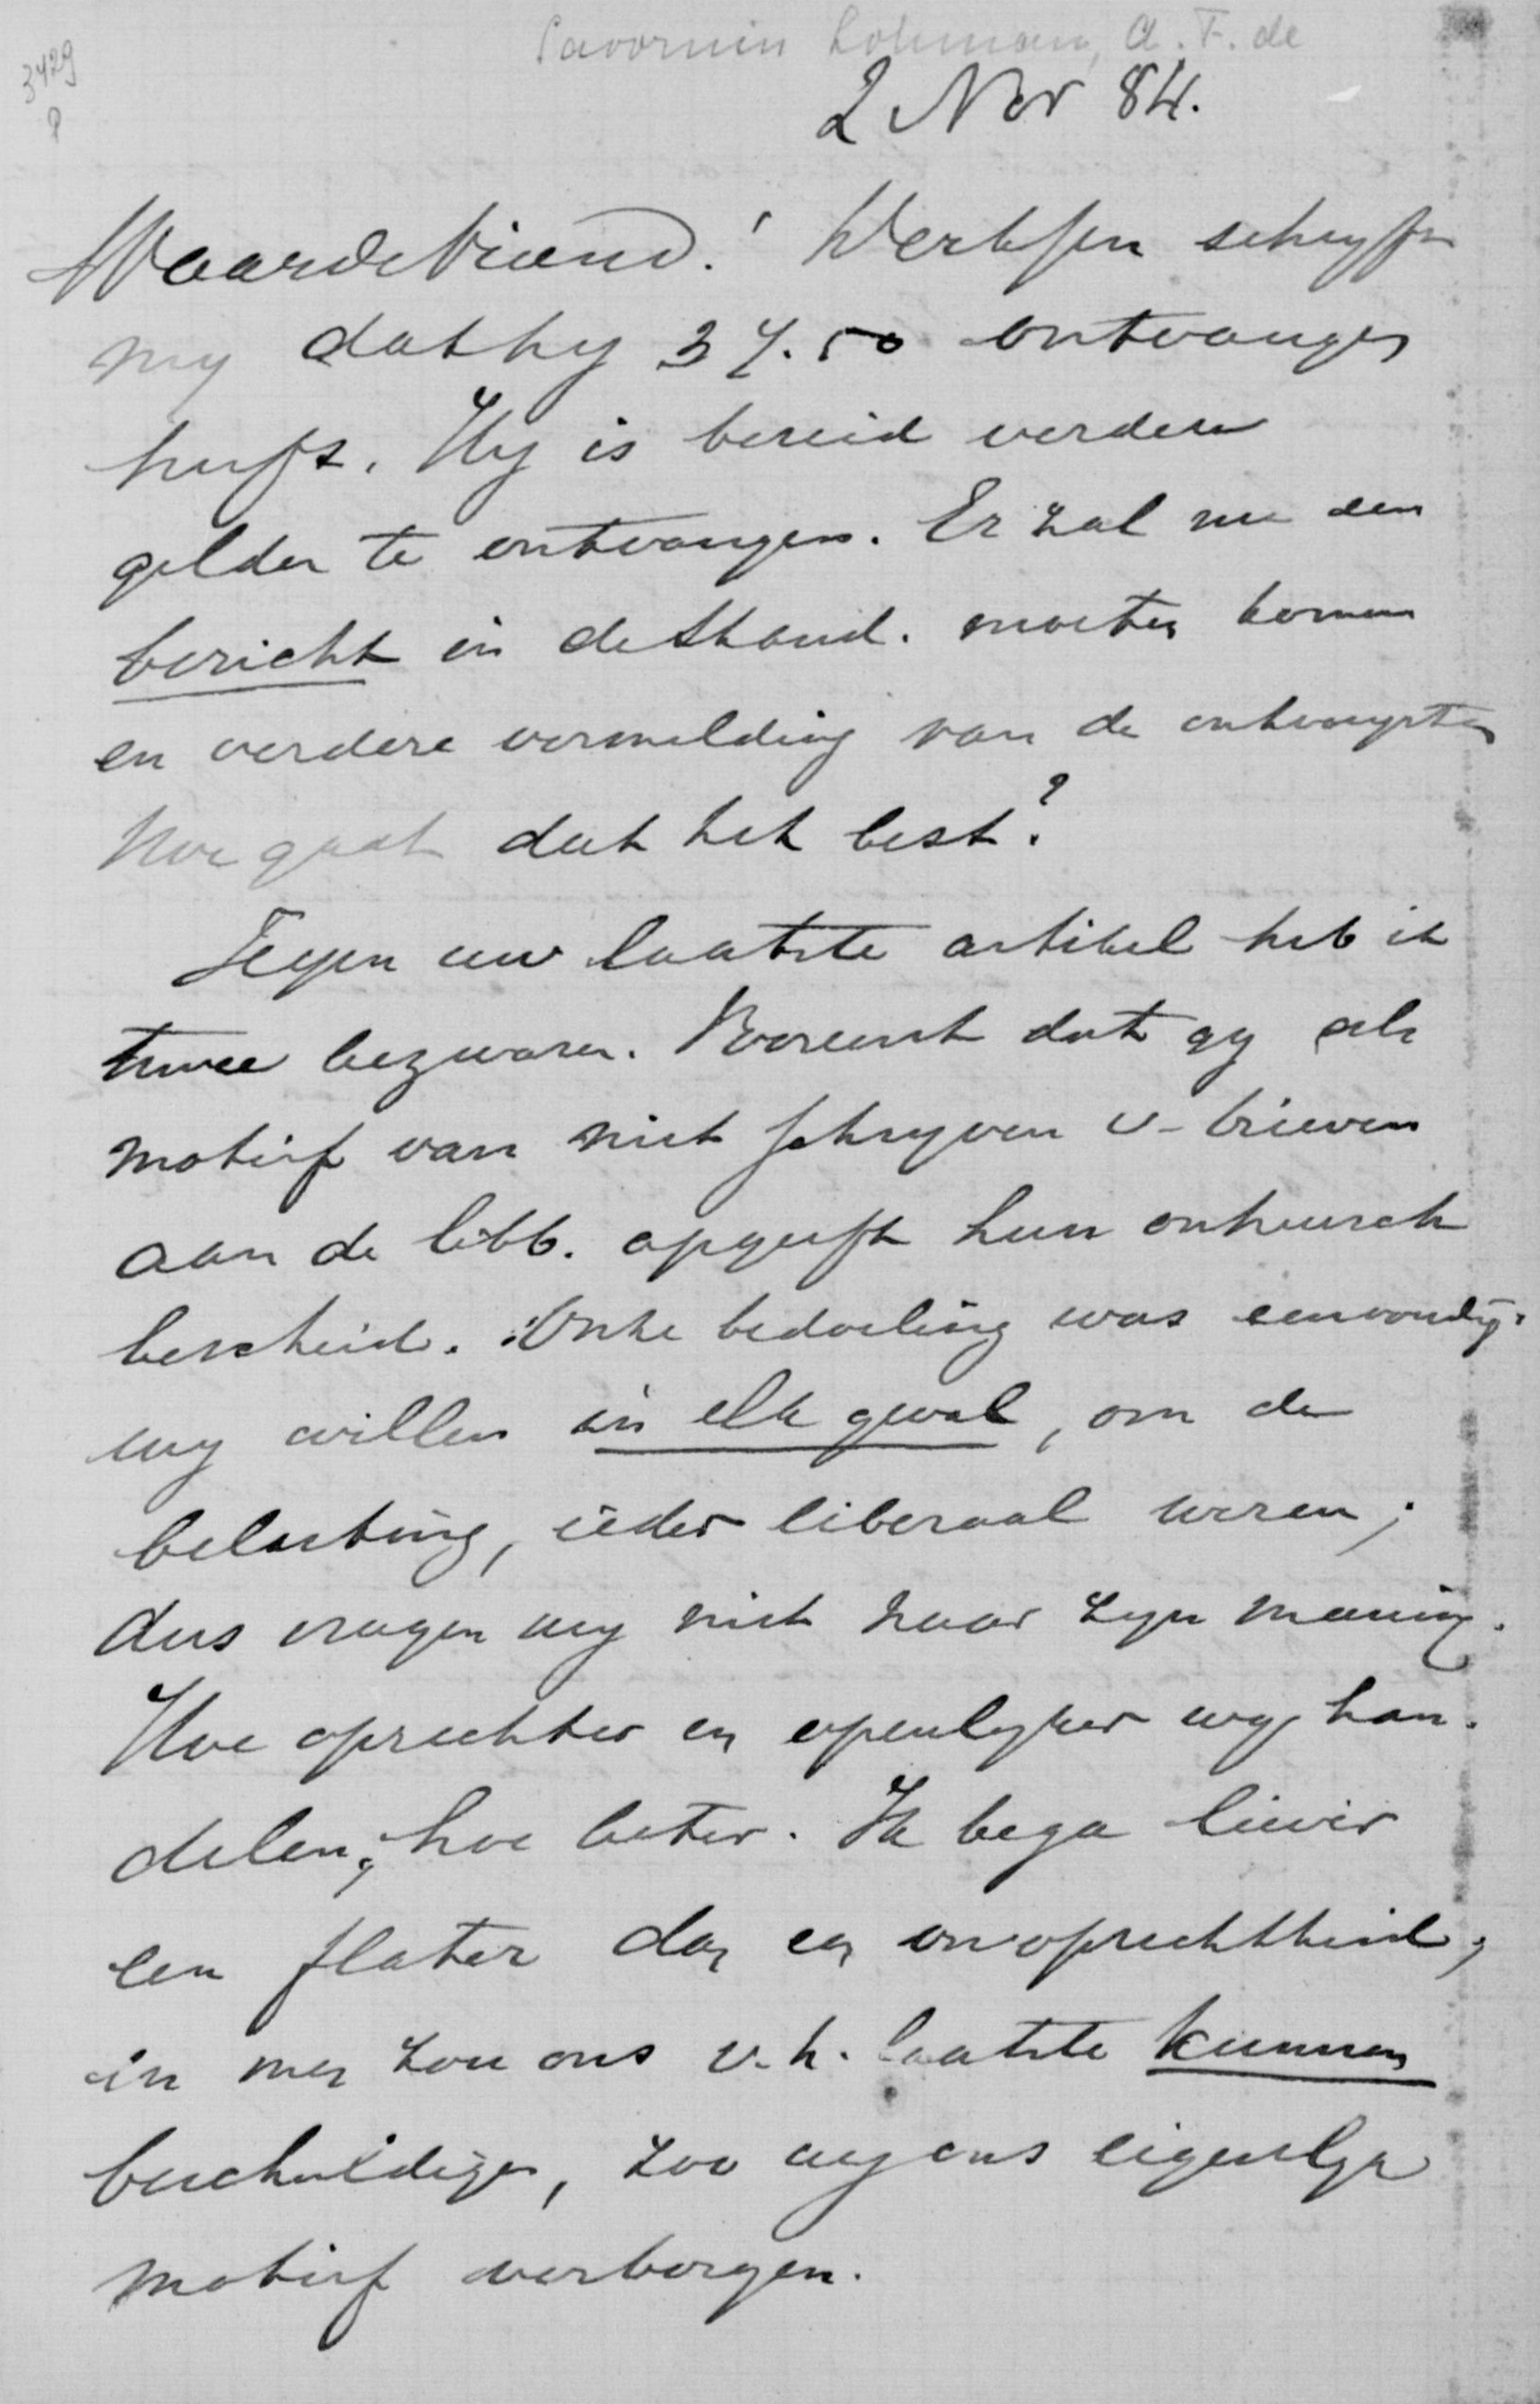 Savornin Lohman, A. F. de
3429
2 Nov 84.
Waarde Vriend! schryft
my dat hy 37.50 ontvangen
heeft. Hy is bereid verdere
gelden te ontvangen. Er zal nu een
bericht in de Stand. moeten komen
en verdere vermelding van de ontvangsten
Hoe gaat dat het best?
Tegen uw laatste artikel heb ik
twee bezwaren. Vooreerst dat gy als
motief van niet schryven v. brieven
aan de libb. opgeeft hun onheusch
bescheid. Onze bedoeling was eenvoudig:
wy willen in elk geval, om de
belasting, ieder liberaal weren;
dus vragen wy niet naar zyn mening.
Hoe oprechter en openlyker wy han-
delen, hoe beter. Ik bega liever
een flater dan een onoprechtheid,
en men zou ons v. h. laatste kunnen
beschuldigen, zoo wy ons eigenlyk
motief verborgen.